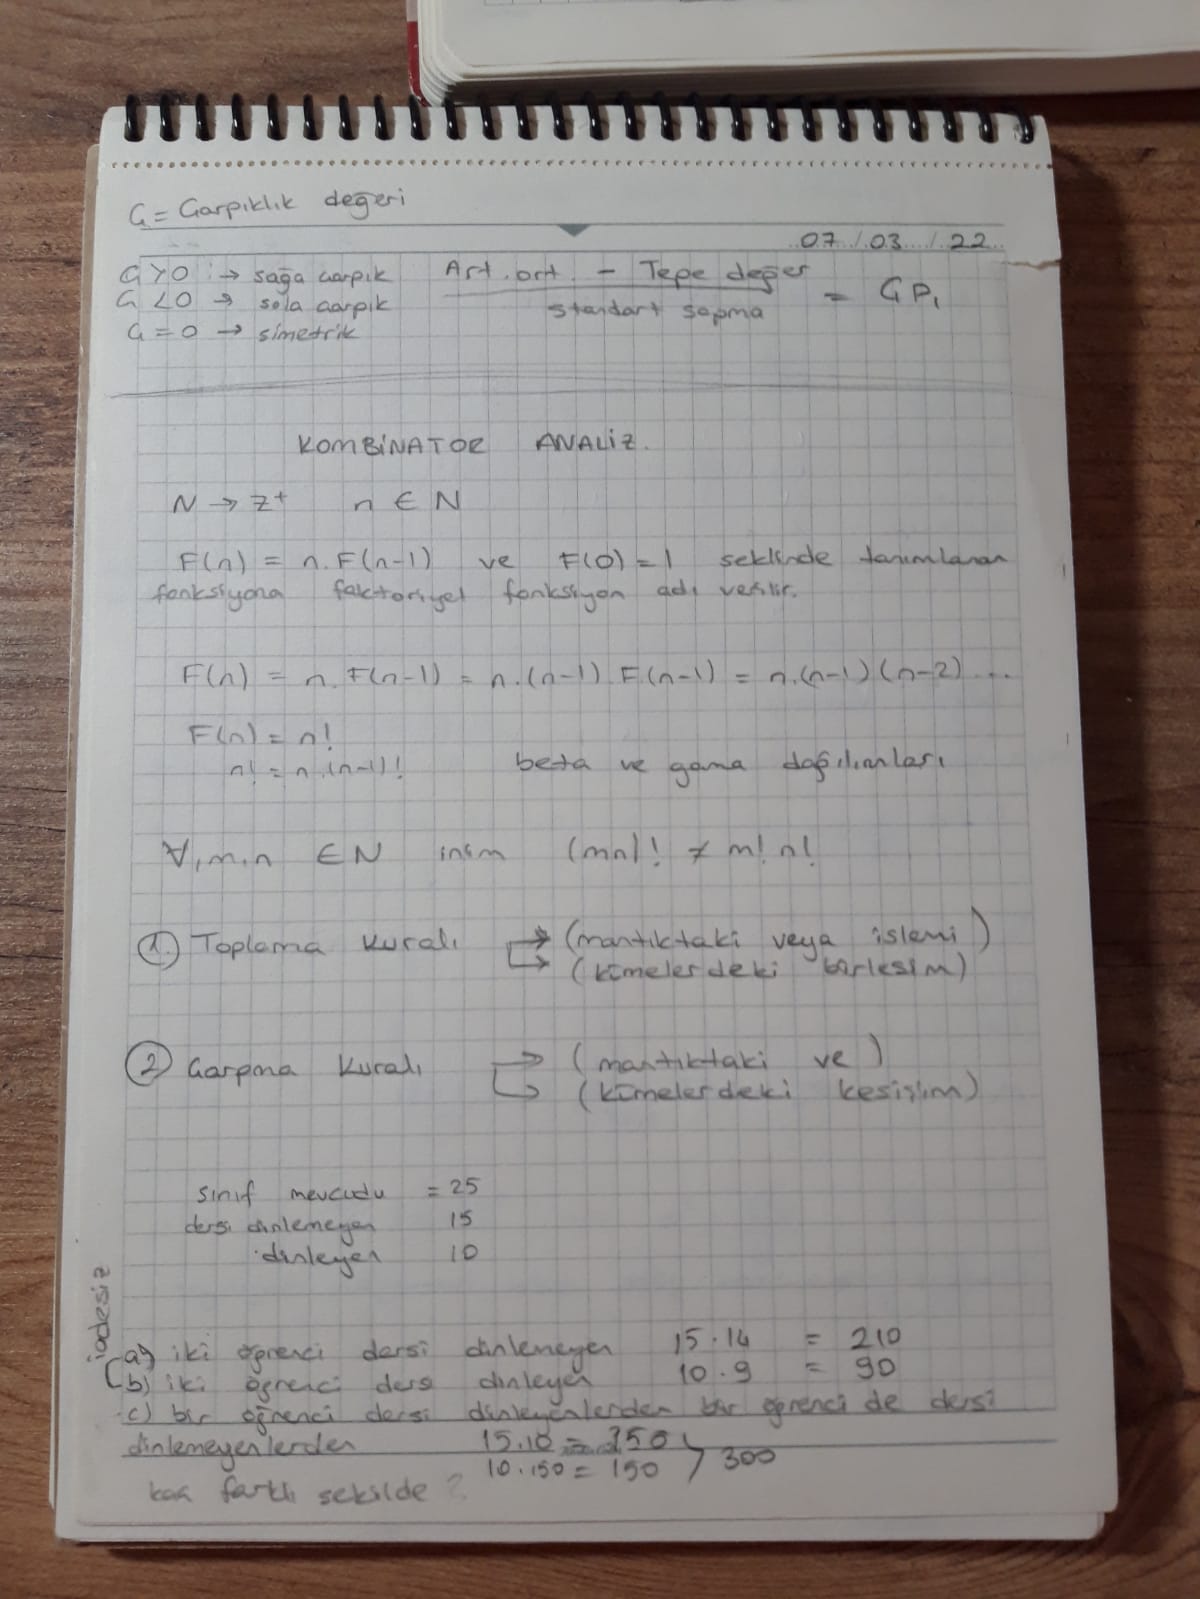 Ç = Çarpıklık değeri
07/03/22
Ç > 0 : → sağa çarpık
Ç < 0 → sola çarpık
Ç = 0 → simetrik
Art. ort. - Tepe değer
standart sapma
= ÇP₁
KOMBİNATOR ANALİZ.
N → Z⁺ n ∈ N
F(n) = n.F(n-1) ve F(0) = 1 seklinde tanımlanan
fonksiyona faktoriyel fonksiyon adı verilir.
F(n) = n.F(n-1) = n.(n-1).F(n-1) = n.(n-1)(n-2)....
F(n) = n!
n! = n.(n-1)!
beta ve gama dağılımları
∀, m, n ∈ N için (mn)! ≠ m! n!
1. Toplama Kuralı → (mantıktaki veya islemi)
→ (kümelerdeki birlesim)
2 Çarpma Kuralı → (mantıktaki ve)
→ (kümelerdeki kesişim)
sınıf mevcudu = 25
dersi dinlemeyen 15
dinleyen 10
iadesiz
a) iki öğrenci dersi dinlemeyen 15.14 = 210
b) iki öğrenci dersi dinleyen 10.9 = 90
c) bir öğrenci dersi dinleyenlerden bir öğrenci de dersi
dinlemeyenlerden 15.10 = 150
10.150 = 150
300
kaç farklı sekilde ?